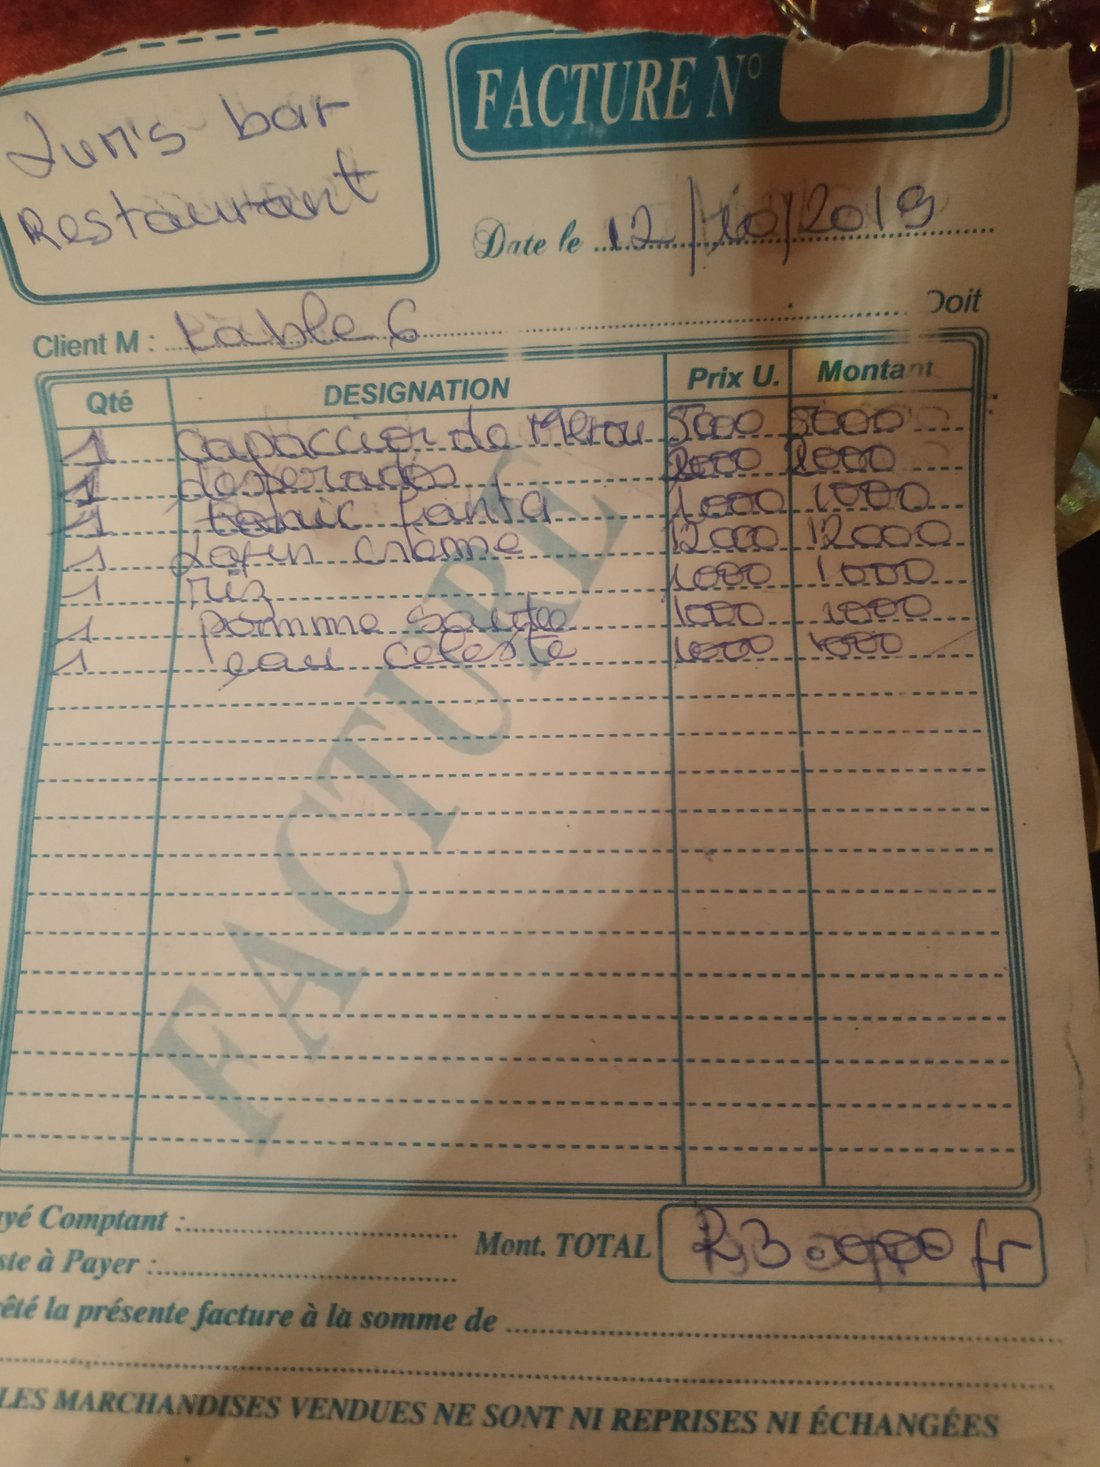 FACTURE N°
bar
Restaurant
Date le 12/10/2019
Client M : table 6 Doit
Qté DESIGNATION Prix U. Montant
1 capaccior de Merou 5000 5000
1 desperados 2000 2000
1 tonic fanta 1.000 1000
1 crème 12000 12000
1 riz 1000 1000
1 pomme sautée 1000 1000
1 eau celeste 1000 1000
FACTURE
yé Comptant :
ste à Payer :
Mont. TOTAL 23.000 fr
êté la présente facture à la somme de
LES MARCHANDISES VENDUES NE SONT NI REPRISES NI ÉCHANGÉES